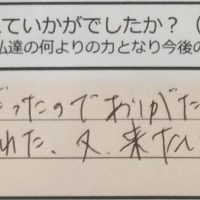 ていかがでしたか？（
私達の何よりの力となり今後の
だったのでおいがた
れた、又、来たい